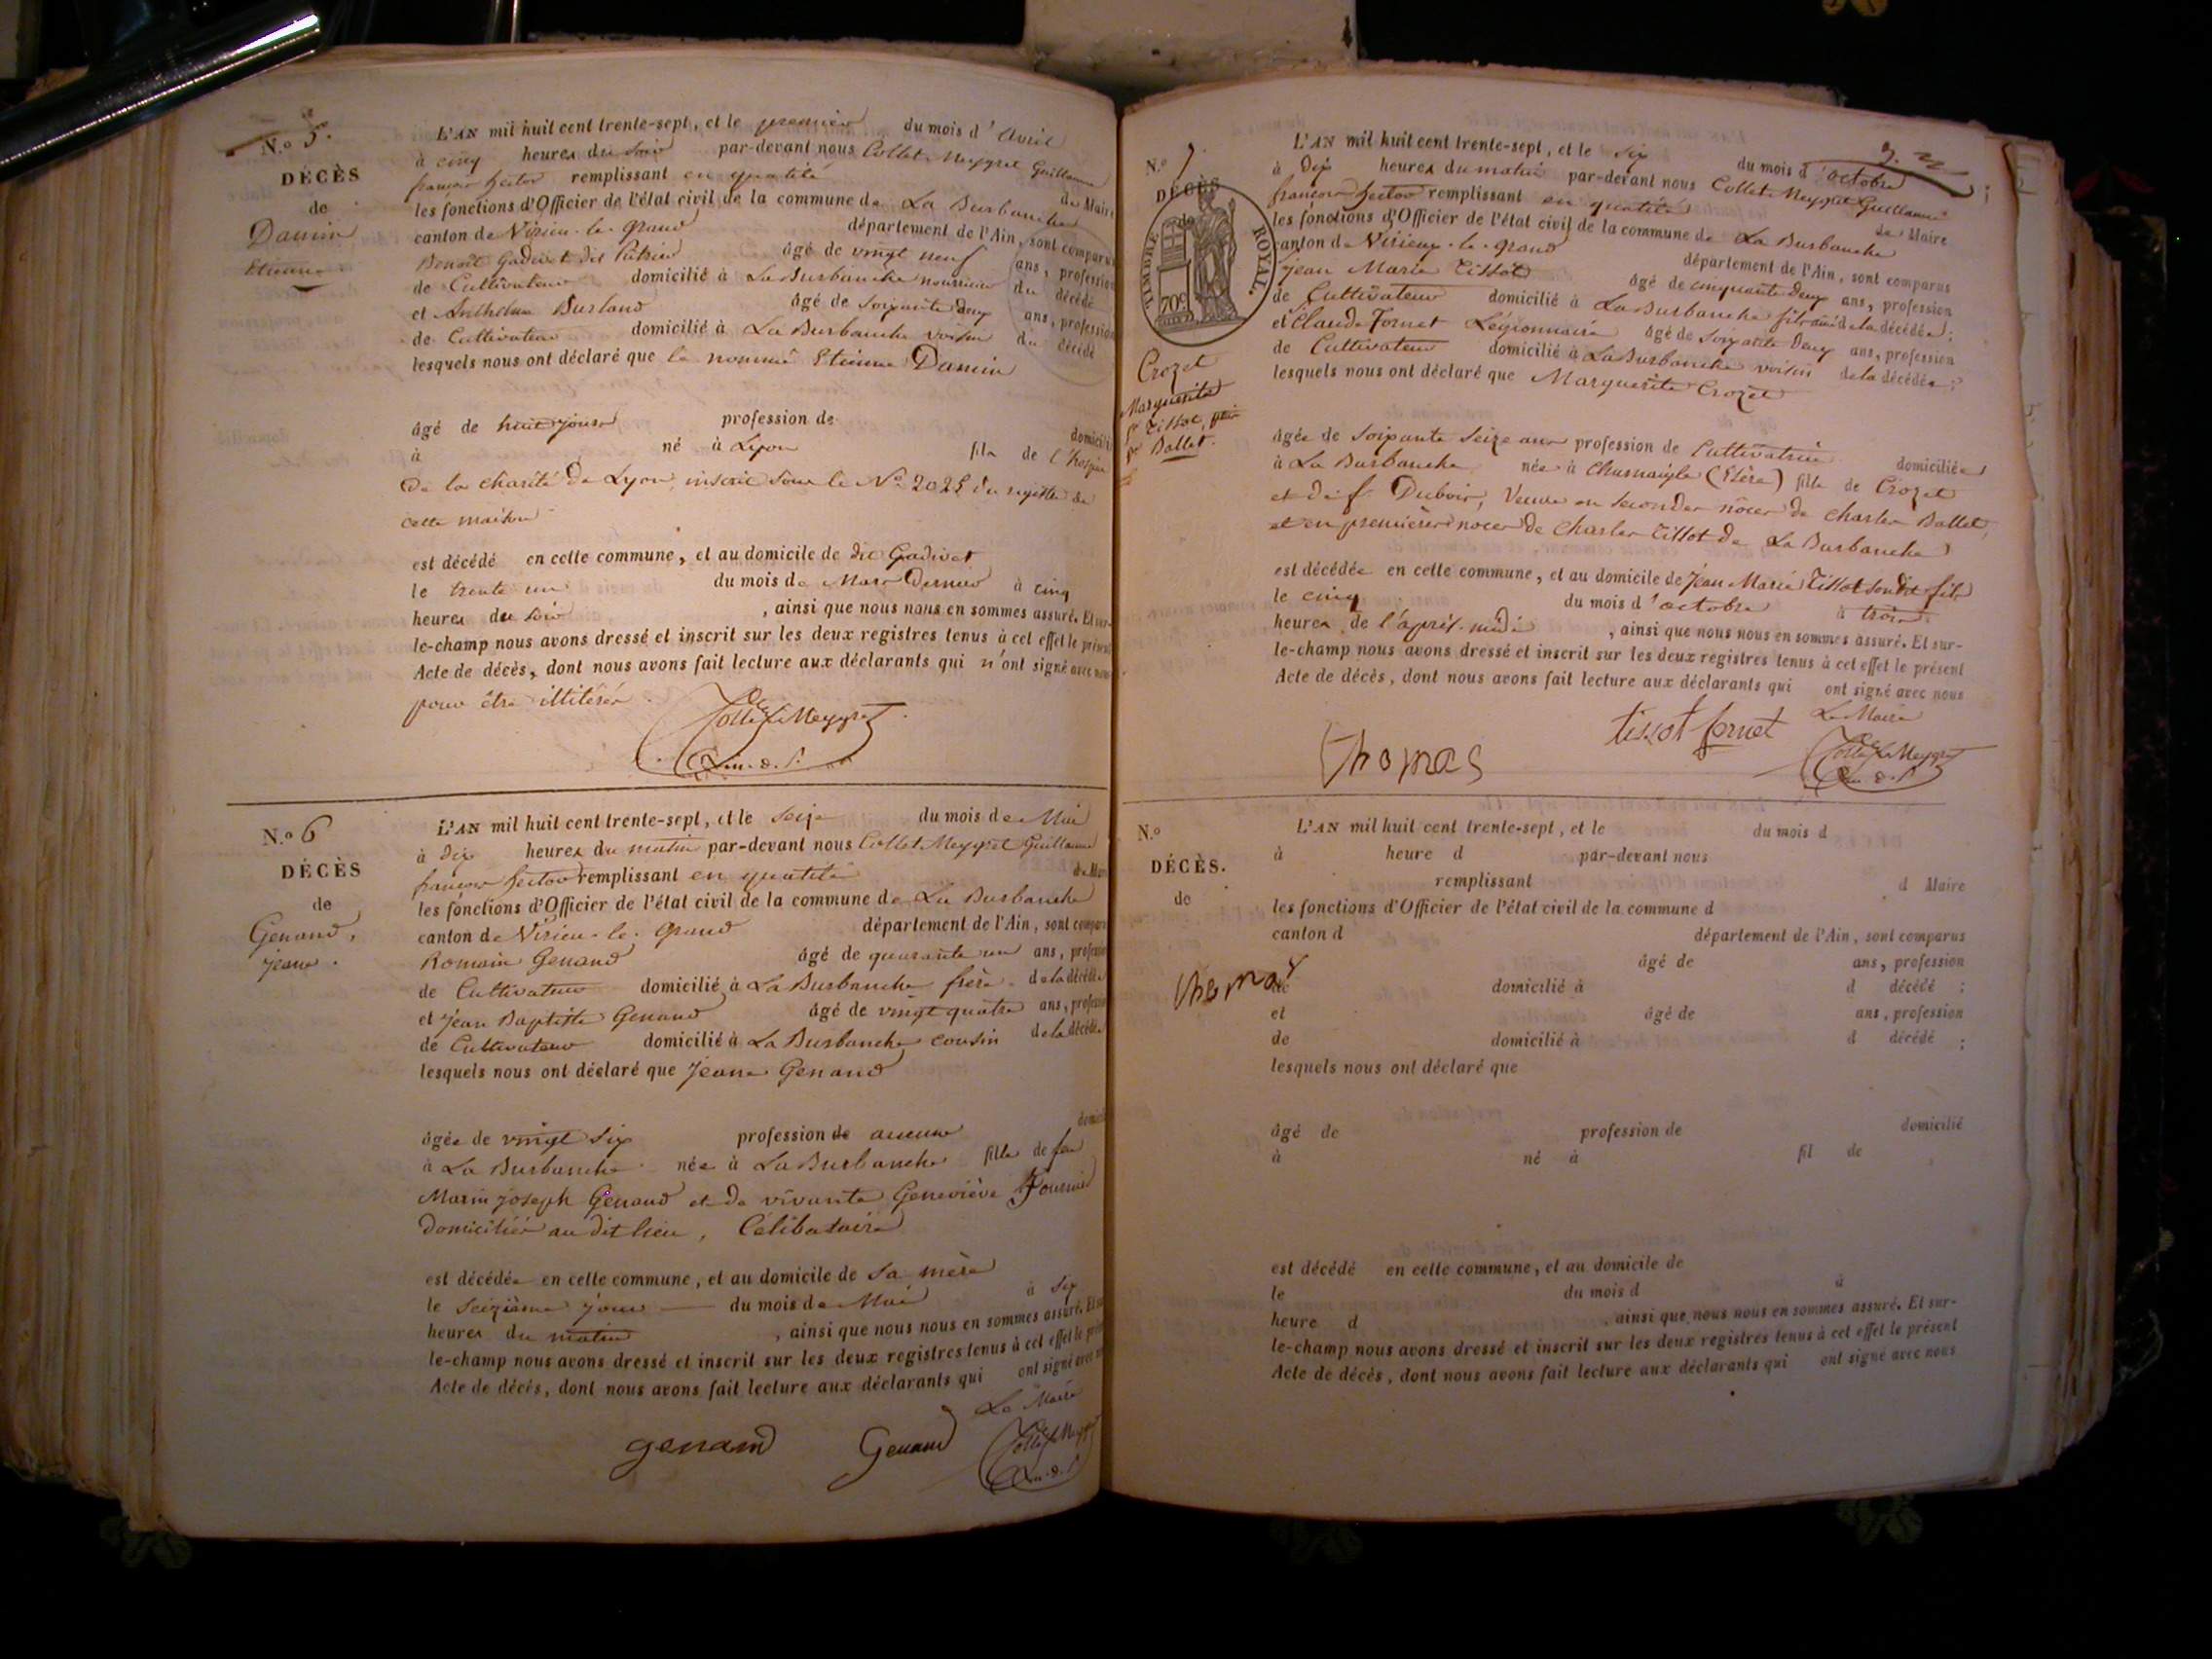 N.o 5.
DÉCÈS
de
Damin
Etienne
L'AN mil huit cent trente-sept, et le premier du mois d'Avril
à cinq heures du soir par-devant nous Collet-Meygret Guillaume
françois hector remplissant en qualité de Maire
les fonctions d'Officier de l'état civil de la commune de La Burbanche
canton de Virieu-le-grand département de l'Ain, sont comparus
Benoît Gadivet dit âgé de vingt neuf ans, profession
de Cultivateur domicilié à La Burbanche nourricier du décédé
et Anthelme Burland âgé de soixante deux ans, profession
de Cultivateur domicilié à La Burbanche voisin du décédé
lesquels nous ont déclaré que le nommé Etienne Damin
âgé de huit jours profession de domicilié
à né à Lyon fils de l'hospice
De la charité de Lyon, inscrit sous le No 2025 du registre de
cette maison
est décédé en cette commune, et au domicile de dit Gadivet
le trente un du mois de Mars Dernier à cinq
heures du soir, ainsi que nous nous en sommes assuré. Et sur-
le-champ nous avons dressé et inscrit sur les deux registres tenus à cet effet le présent
Acte de décès, dont nous avons fait lecture aux déclarants qui n'ont signé avec nous
pour être illitérés.
Collet-Meygret
N.o 6
DÉCÈS
de
Genand,
jeanne.
L'AN mil huit cent trente-sept, et le seize du mois de Mai
à dix heures du matin par-devant nous Collet-Meygret Guillaume
françois hector remplissant en qualité de Maire
les fonctions d'Officier de l'état civil de la commune de La Burbanche
canton de Virieu-le-grand département de l'Ain, sont comparus
Romain Genand âgé de quarante un ans, profession
de Cultivateur domicilié à La Burbanche frère de la décédée
et jean Baptiste Genand âgé de vingt quatre ans, profession
de Cultivateur domicilié à La Burbanche cousin de la décédée
lesquels nous ont déclaré que jeanne Genand
âgée de vingt six profession de aucune domiciliée
à La Burbanche née à La Burbanche fille de feu
Marin joseph Genand et de vivante Geneviève Fournier
Domiciliés au dit lieu, Célibataire
est décédée en cette commune, et au domicile de sa mère
le seizième jour du mois de Mai à six
heures du matin, ainsi que nous nous en sommes assuré. Et sur-
le-champ nous avons dressé et inscrit sur les deux registres tenus à cet effet le présent
Acte de décès, dont nous avons fait lecture aux déclarants qui ont signé avec nous
Le Maire
genand Genand Collet-Meygret
N.o 7
DÉCÈS
de
TIMBRE ROYAL.
70c
Crozet
Marguerite
Tissot, puis
Ballet.
L'AN mil huit cent trente-sept, et le six du mois d'octobre
à Dix heures du matin par-devant nous Collet-Meygret Guillaume
françois hector remplissant en qualité de Maire
les fonctions d'Officier de l'état civil de la commune de La Burbanche
canton de Virieux-le-grand département de l'Ain, sont comparus
jean Marie Tissot âgé de cinquante deux ans, profession
de Cultivateur domicilié à La Burbanche fils de la décédée;
et Claude Fornet Légionnaire âgé de soixante Deux ans, profession
de Cultivateur domicilié à La Burbanche voisin de la décédée;
lesquels nous ont déclaré que Marguerite Crozet
âgée de soixante seize ans profession de Cultivatrice domiciliée
à La Burbanche née à (Isère) fille de Crozet
et de f. Dubois, Veuve en secondes nôces de Charles Ballet,
et en premières noces de Charles Tissot de La Burbanche
est décédée en cette commune, et au domicile de Jean Marie Tissot son dit fils
le cinq du mois d'octobre à trois
heures de l'après-midi, ainsi que nous nous en sommes assuré. Et sur-
le-champ nous avons dressé et inscrit sur les deux registres tenus à cet effet le présent
Acte de décès, dont nous avons fait lecture aux déclarants qui ont signé avec nous
Le Maire
Thomas tissot fornet Collet-Meygret
N.o
DÉCÈS.
de
thomas
L'AN mil huit cent trente-sept, et le du mois d
à heure d par-devant nous
remplissant d Maire
les fonctions d'Officier de l'état civil de la commune d
canton d département de l'Ain, sont comparus
âgé de ans, profession
de domicilié à d décédé ;
et âgé de ans, profession
de domicilié à d décédé ;
lesquels nous ont déclaré que
âgé de profession de domicilié
à né à fil de
est décédé en cette commune, et au domicile de
le du mois d à
heure d , ainsi que nous nous en sommes assuré. Et sur-
le-champ nous avons dressé et inscrit sur les deux registres tenus à cet effet le présent
Acte de décès, dont nous avons fait lecture aux déclarants qui ont signé avec nous